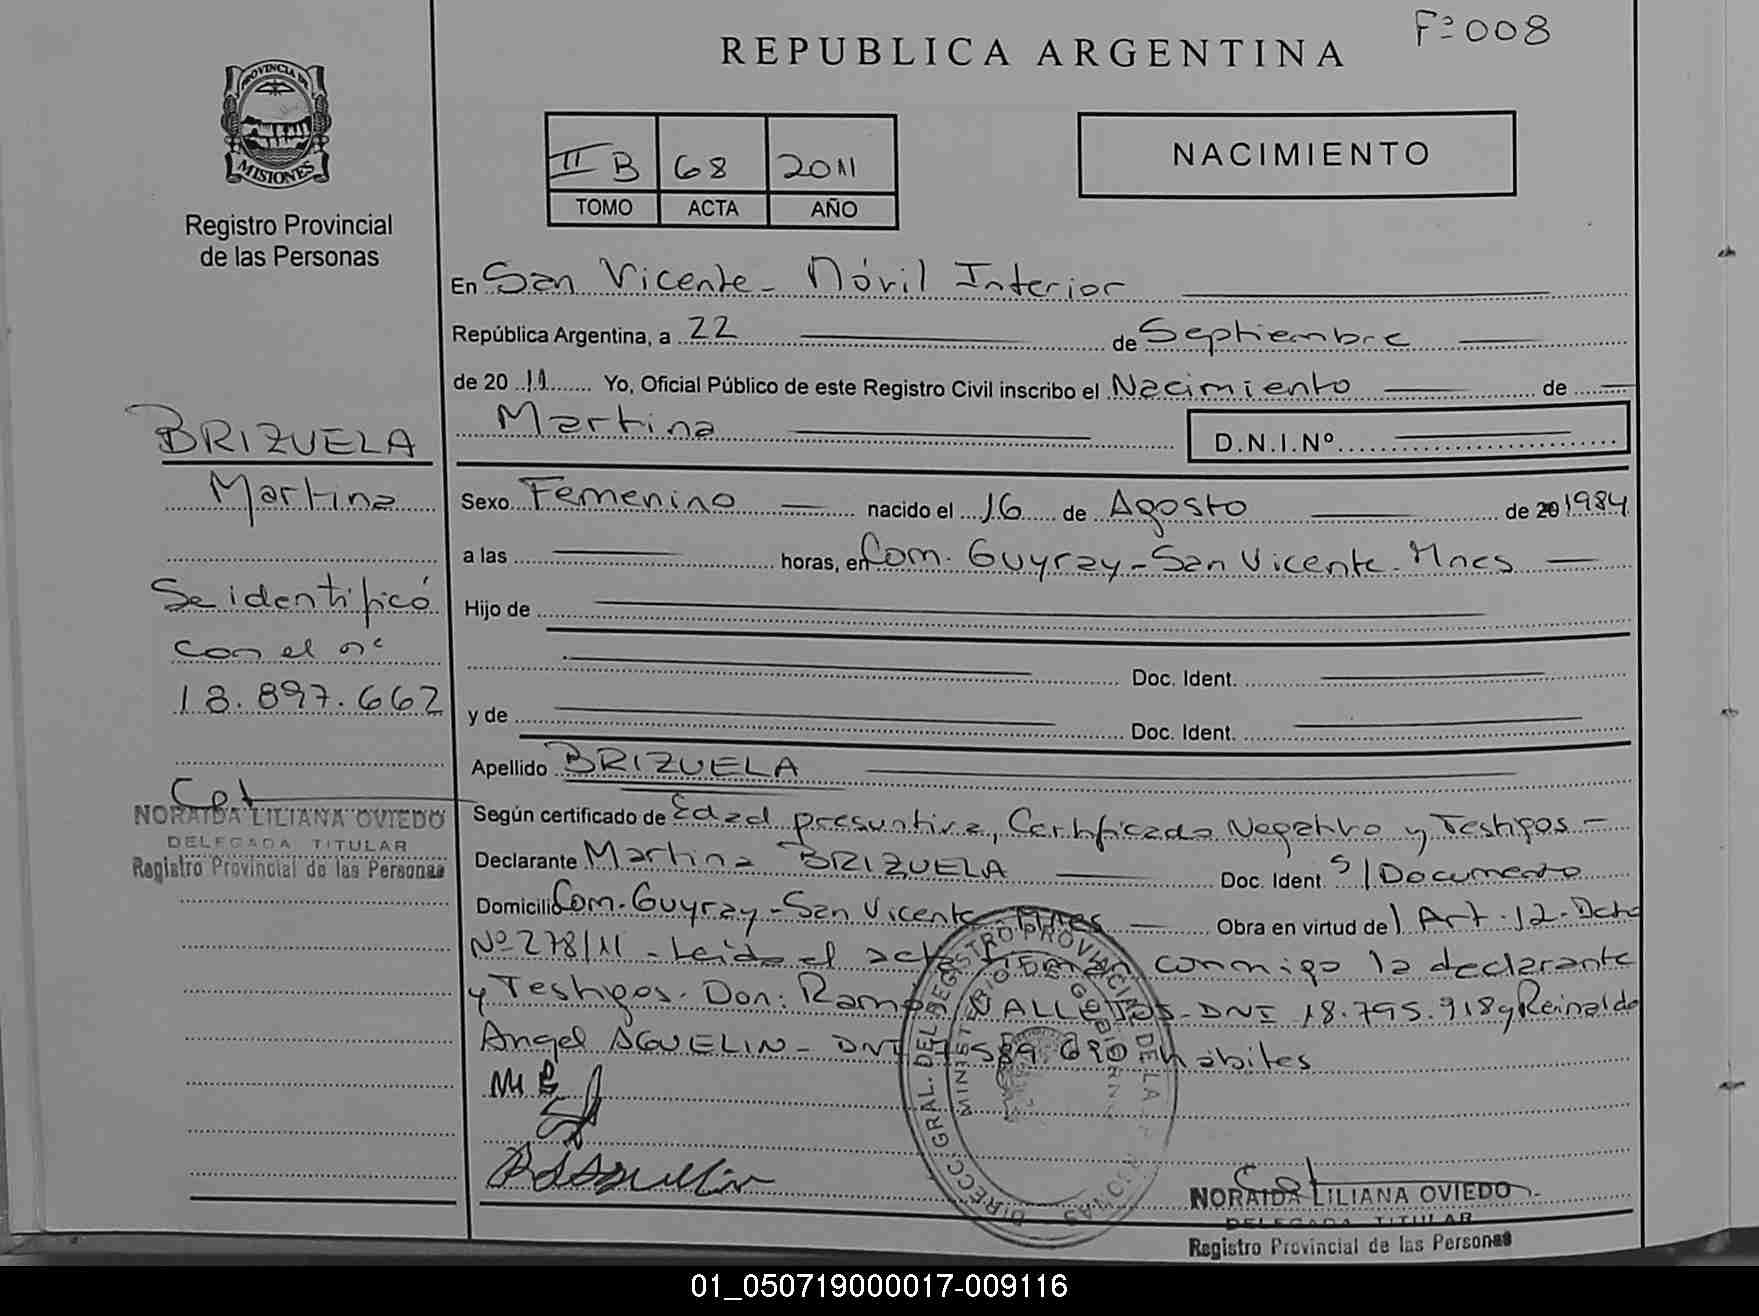 REPUBLICA ARGENTINA
Fº=008
PROVINCIA DE
MISIONES
Registro Provincial
de las Personas
II B 68 2011
TOMO ACTA AÑO
NACIMIENTO
En San Vicente - Móvil Interior
República Argentina, a 22 de Septiembre
de 20 11 Yo, Oficial Público de este Registro Civil inscribo el Nacimiento de
Martina D.N.I.Nº
Sexo Femenino nacido el 16 de Agosto de 1984
a las horas, en Com. Guyray - San Vicente - Mnes
Hijo de
Doc. Ident.
y de Doc. Ident.
Apellido BRIZUELA
Según certificado de Edad presuntiva, Certificado Negativo y Testigos -
Declarante Martina BRIZUELA Doc. Ident S/Documento
Domicilio Com. Guyray - San Vicente - Mnes Obra en virtud del Art. 12 - Dcto
Nº 278/11 - Leida el acta firman conmigo la declarante
y Testigos. Don: Ramon VALLEJOS - DNI 18.795.918 y Reinaldo
Angel AGUELIN - DNI habiles
M B
BRIZUELA
Martina
Se identificó
con el nº
18.897.662
NORAIDA LILIANA OVIEDO
DELEGADA TITULAR
Registro Provincial de las Personas
DIRECC. GRAL. DEL REGISTRO PROVINCIAL DE LAS PERSONAS
MINISTERIO DE GOBIERNO
NORAIDA LILIANA OVIEDO
DELEGADA TITULAR
Registro Provincial de las Personas
01_050719000017-009116